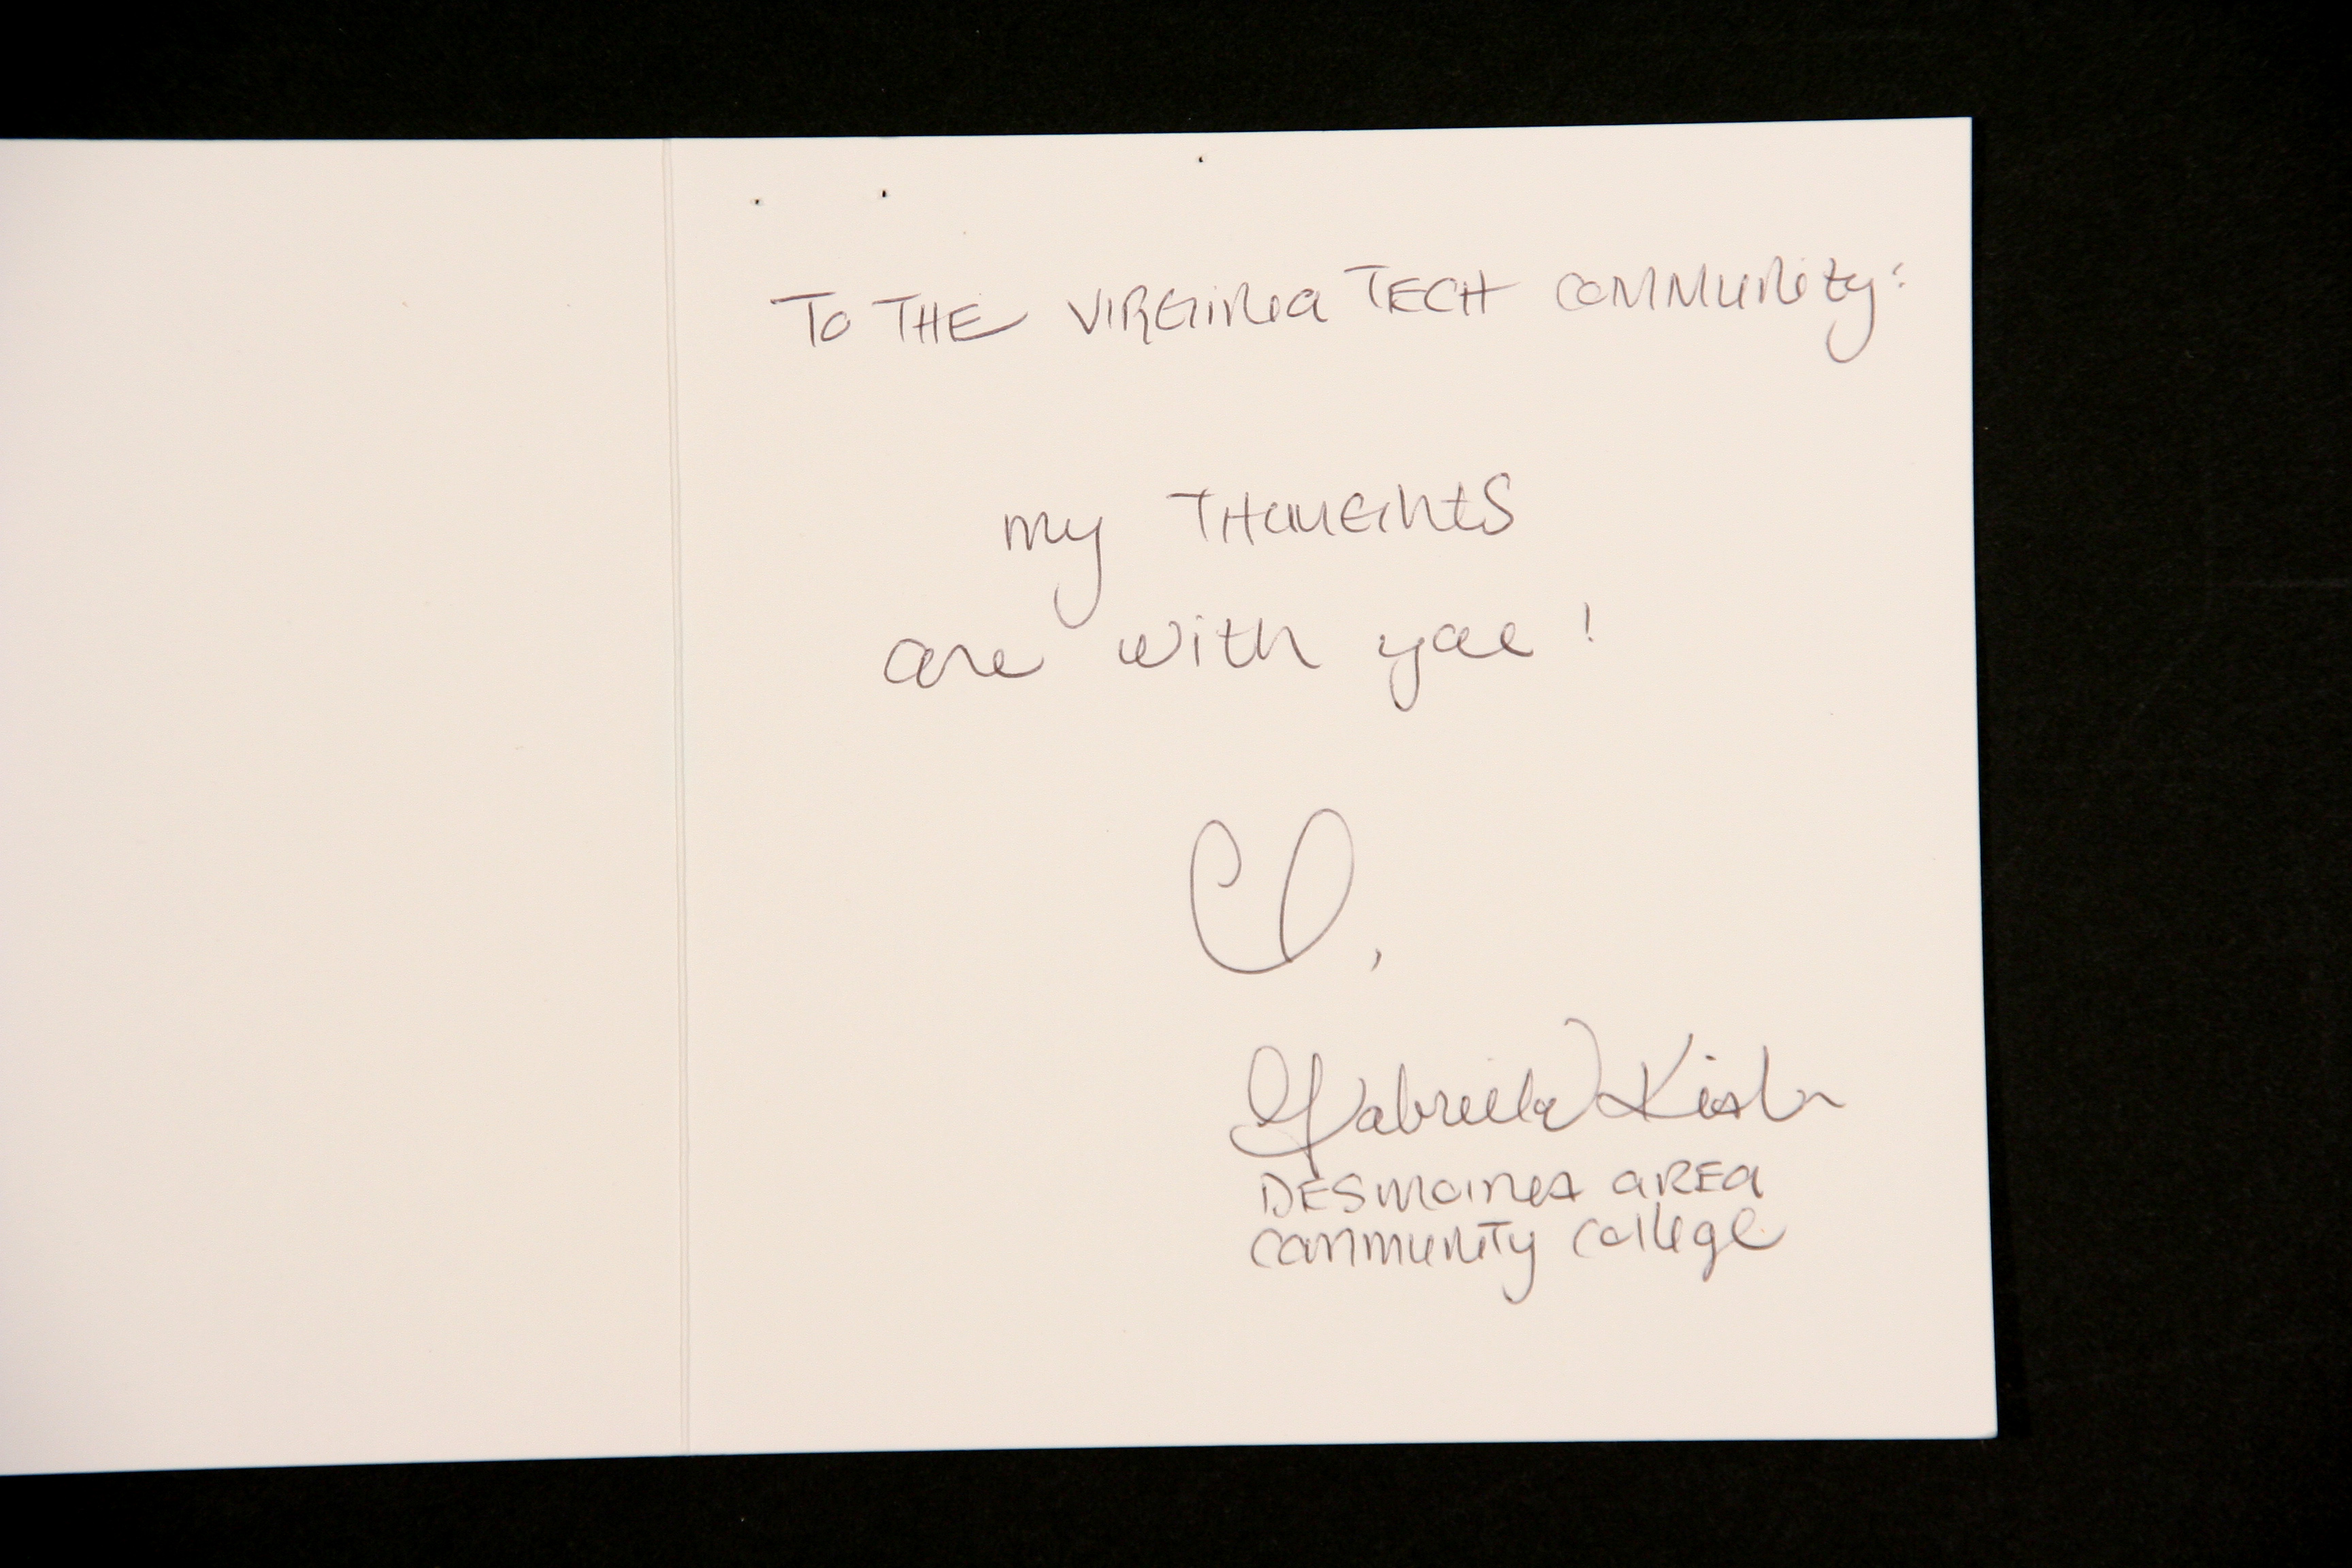 TO THE VIRGINIA TECH COMMUNITY:
my THOUGHTS
are with you!
Gabriela
DESMOINES AREA
COMMUNITY College